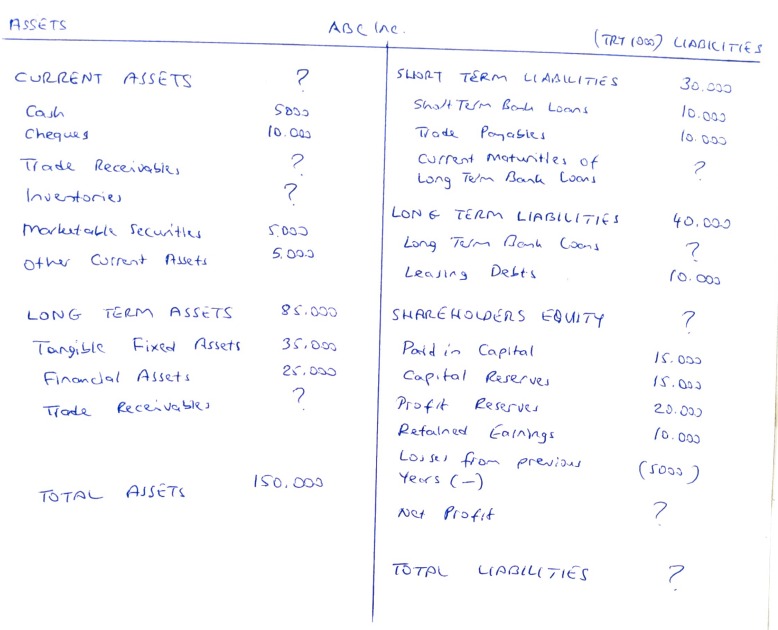 ASSETS ABC Inc. (TRY 1000) LIABILITIES
CURRENT ASSETS ?
Cash 5000
Cheques 10.000
Trade Receivables ?
Inventories ?
Marketable Securities 5.000
Other Current Assets 5.000
LONG TERM ASSETS 85.000
Tangible Fixed Assets 35.000
Financial Assets 25.000
Trade Receivables ?
TOTAL ASSETS 150.000
SHORT TERM LIABILITIES 30.000
Short Term Bank Loans 10.000
Trade Payables 10.000
Current Maturities of
Long Term Bank Loans ?
LONG TERM LIABILITIES 40.000
Long Term Bank Loans ?
Leasing Debts 10.000
SHAREHOLDERS EQUITY ?
Paid in Capital 15.000
Capital Reserves 15.000
Profit Reserves 20.000
Retained Earnings 10.000
Losses from previous
Years (-) (5000)
Net Profit ?
TOTAL LIABILITIES ?